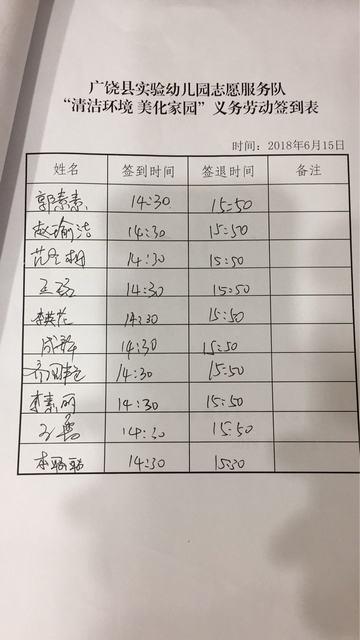 广饶县实验幼儿园志愿服务队
“清洁环境 美化家园”义务劳动签到表
时间：2018年6月15日
姓名 签到时间 签退时间 备注
郭素素 14:30 15:50
赵瑜洁 14:30 15:50
14:30 15:50
14:30 15:50
14:30 15:50
14:30 15:50
14:30 15:50
李素丽 14:30 15:50
14:30 15:50
14:30 15:30